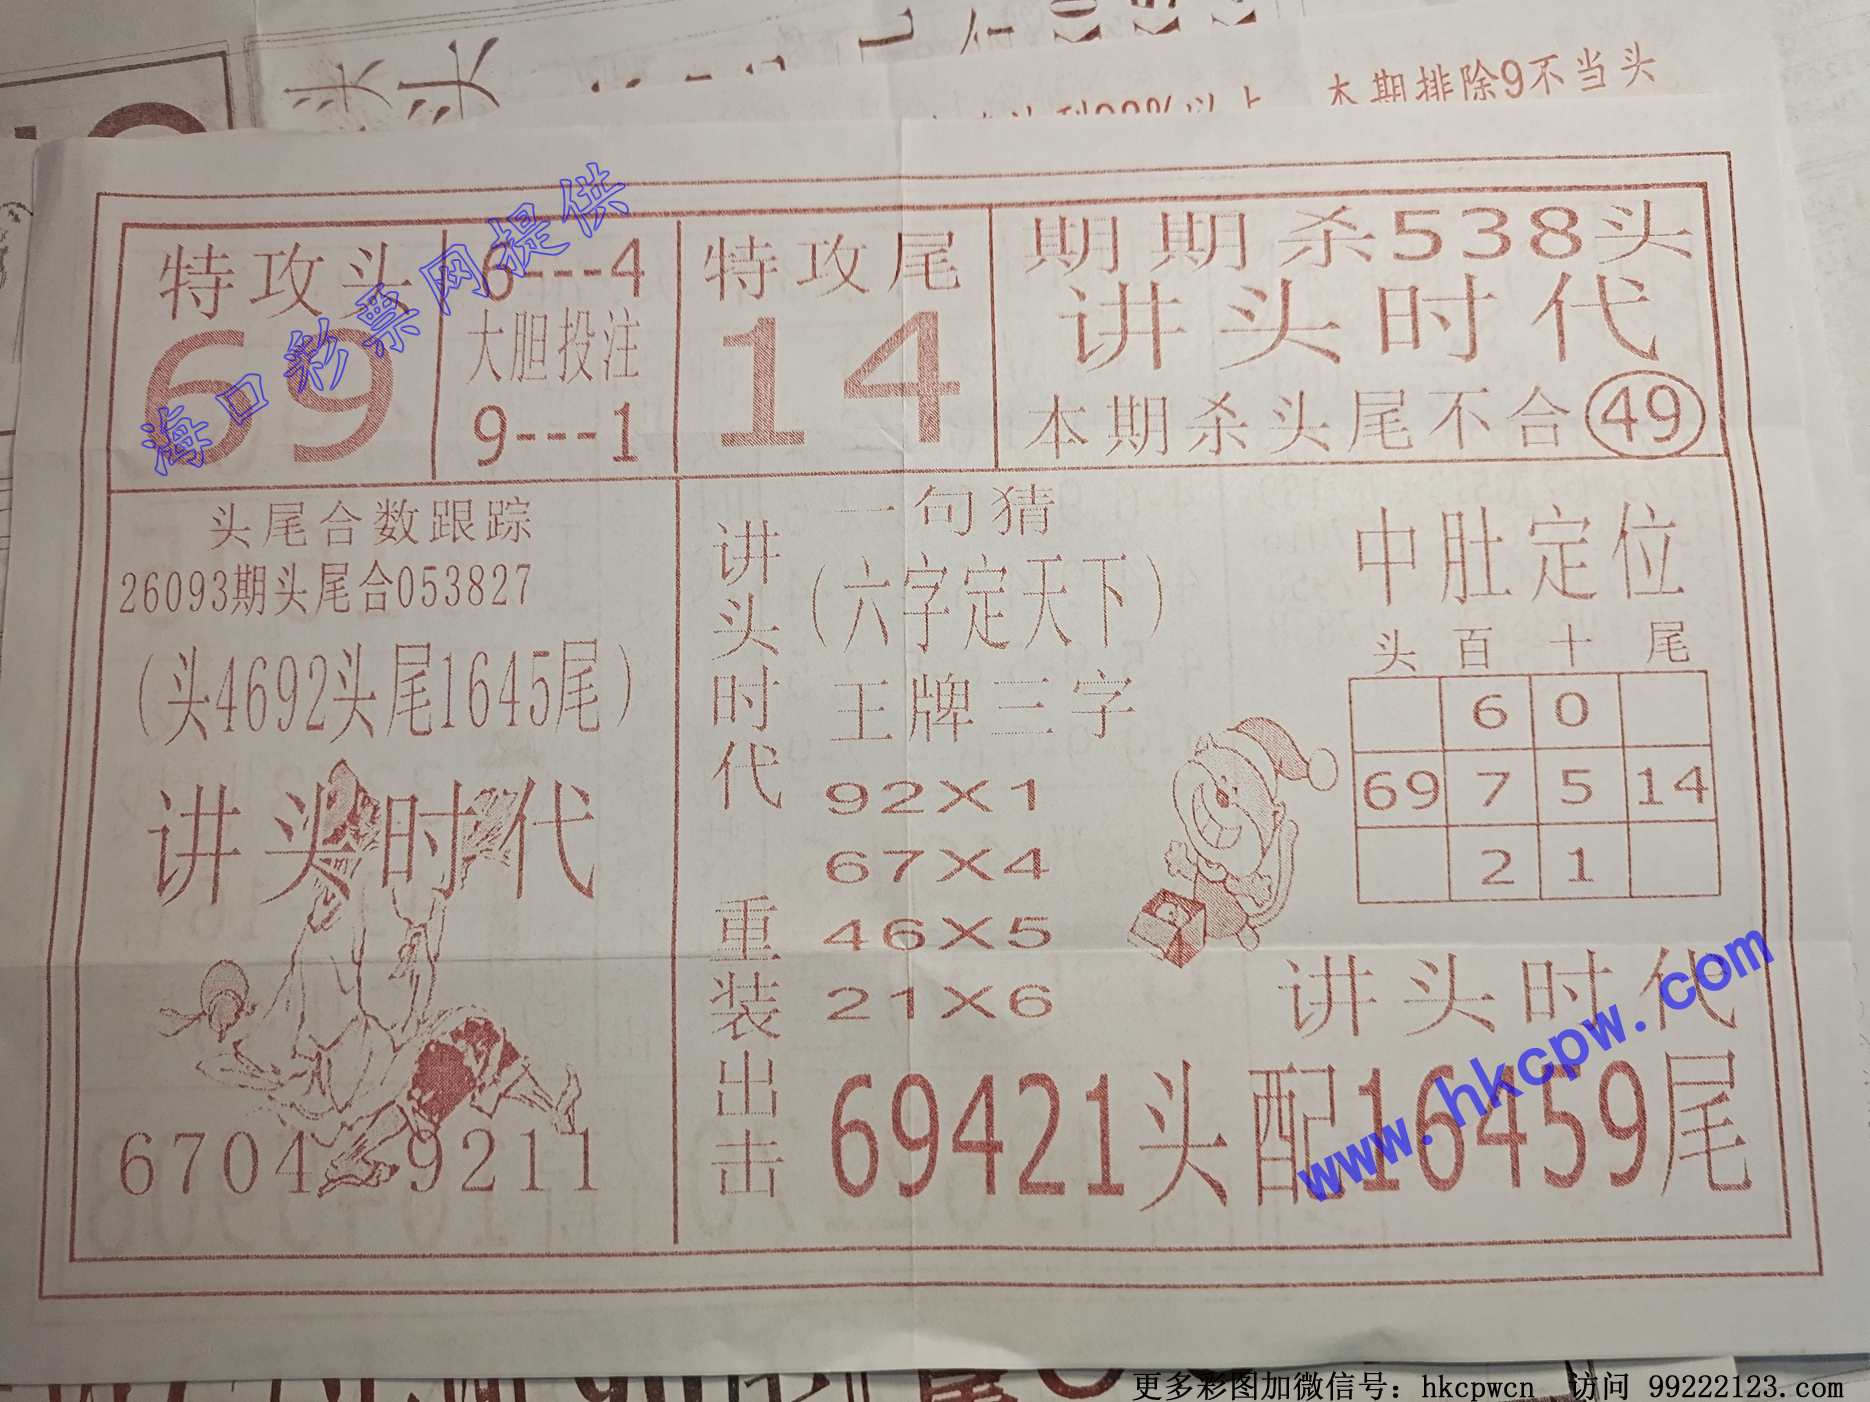 本期排除9不当头
特攻头
69
6---4
大胆投注
9---1
特攻尾
14
期期杀538头
讲头时代
本期杀头尾不合49
头尾合数跟踪
26093期头尾合053827
(头4692头尾1645尾)
讲头时代
6704 9211
讲头时代 重装出击
一句猜
(六字定天下)
王牌三字
92X1
67X4
46X5
21X6
中肚定位
头 百 十 尾
6 0
69 7 5 14
2 1
讲头时代
69421头配16459尾
海口彩票网提供
www.hkcpw.com
更多彩图加微信号：hkcpwcn 访问 99222123.com